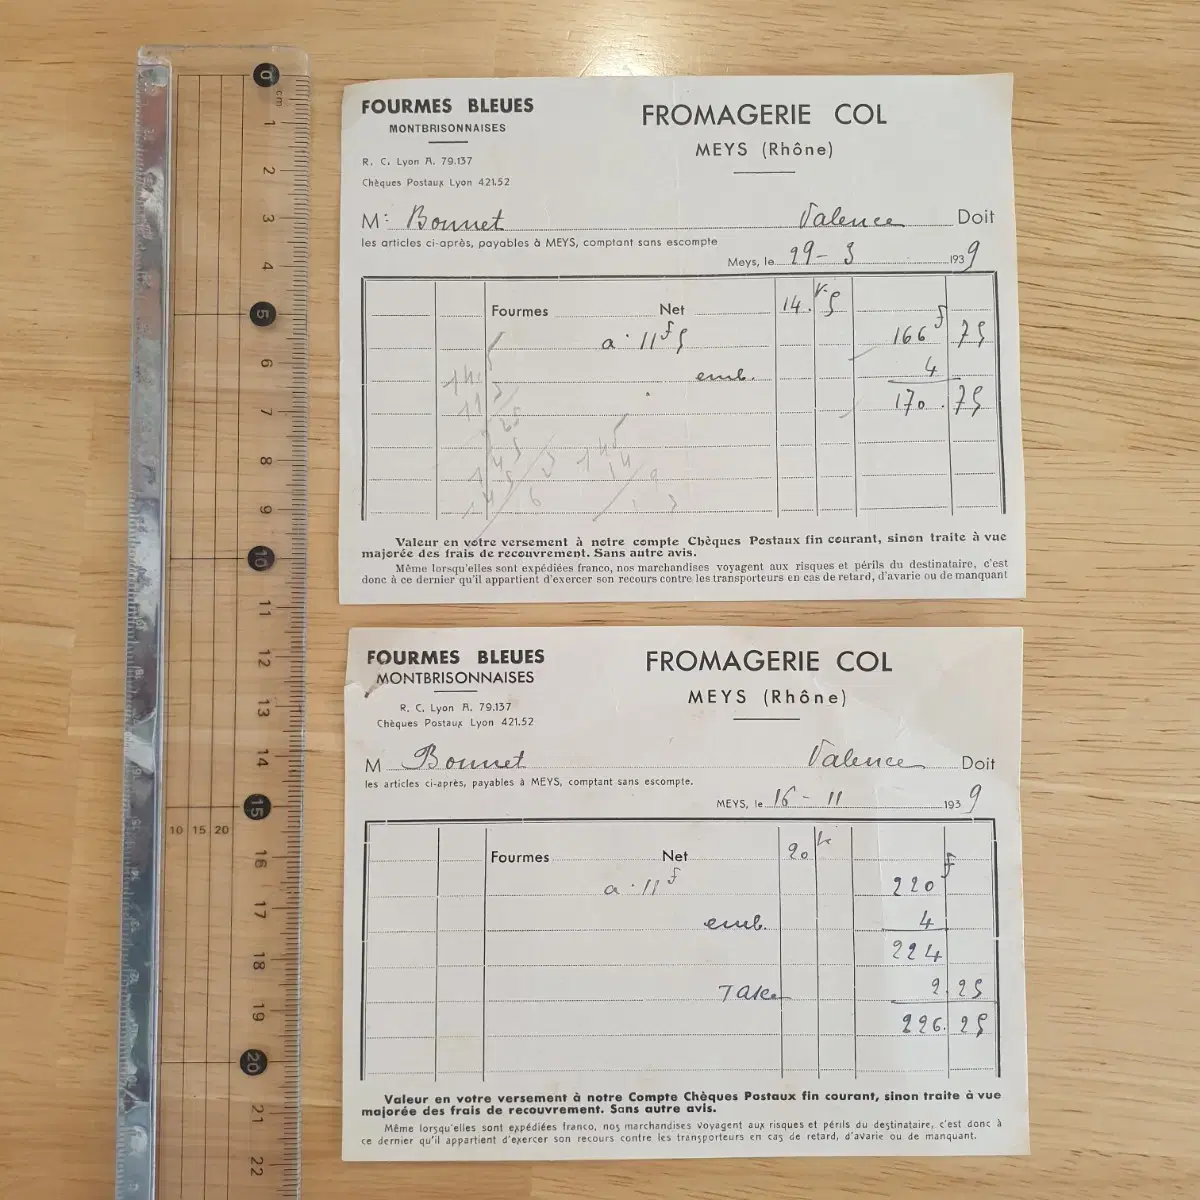 0 cm
1
2
3
4
5
6
7
8
9
10
11
12
13
14
15
10 15 20
16
17
18
19
20
21
22
FOURMES BLEUES
MONTBRISONNAISES
R. C. Lyon A. 79.137
Chèques Postaux Lyon 421.52
FROMAGERIE COL
MEYS (Rhône)
M: Bonnet Valence Doit
les articles ci-après, payables à MEYS, comptant sans escompte
Meys, le 29-3 1939
Fourmes Net 14. K 5
a 11 f 5 166 f 75
emb. 4
170.75
Valeur en votre versement à notre compte Chèques Postaux fin courant, sinon traite à vue
majorée des frais de recouvrement. Sans autre avis.
Même lorsqu'elles sont expédiées franco, nos marchandises voyagent aux risques et périls du destinataire, c'est
donc à ce dernier qu'il appartient d'exercer son recours contre les transporteurs en cas de retard, d'avarie ou de manquant
FOURMES BLEUES
MONTBRISONNAISES
R. C. Lyon A. 79.137
Chèques Postaux Lyon 421.52
FROMAGERIE COL
MEYS (Rhône)
M Bonnet Valence Doit
les articles ci-après, payables à MEYS, comptant sans escompte.
MEYS, le 16-11 1939
Fourmes Net 20 K
a 11 f 220 f
emb. 4
224
Taxe 2 25
226.25
Valeur en votre versement à notre Compte Chèques Postaux fin courant, sinon traite à vue
majorée des frais de recouvrement. Sans autre avis.
Même lorsqu'elles sont expédiées franco, nos marchandises voyagent aux risques et périls du destinataire, c'est donc à
ce dernier qu'il appartient d'exercer son recours contre les transporteurs en cas de retard, d'avarie ou de manquant.